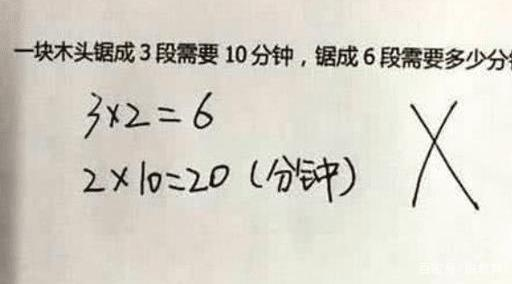 一块木头锯成3段需要10分钟，锯成6段需要多少分
3×2=6
2×10=20（分钟）